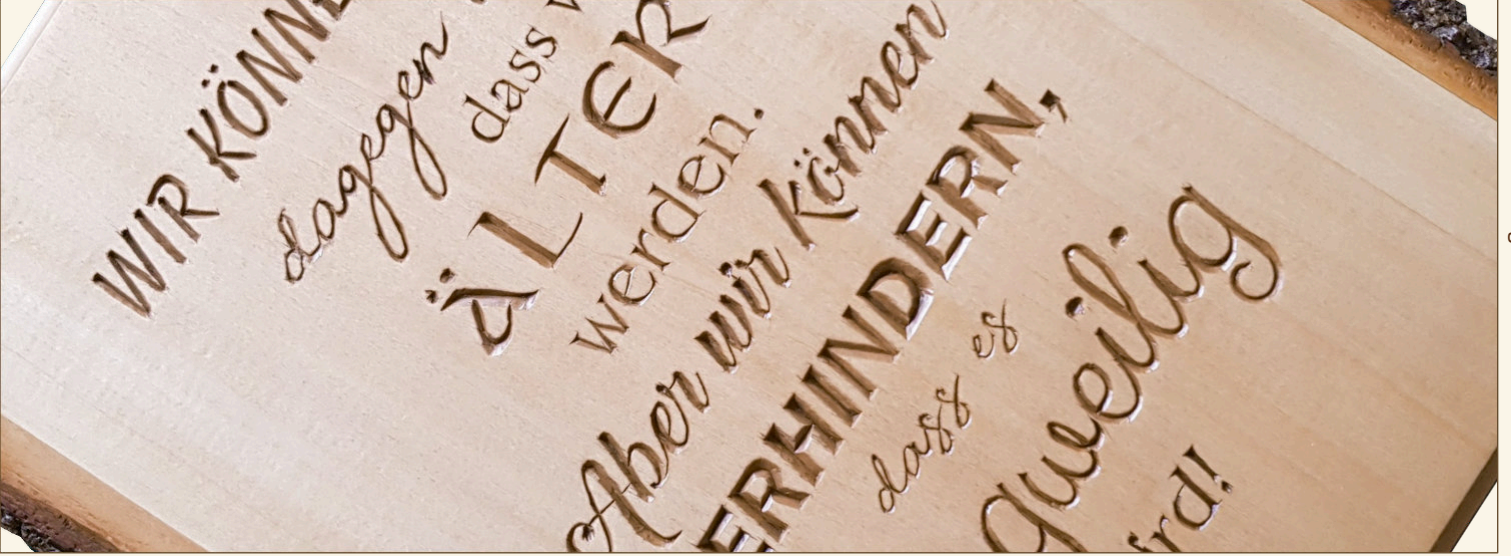 WIR KÖNNE
dagegen
dass
ÄLTER
werden.
Aber wir können
ERHINDERN,
dass es
gweilig
ird!